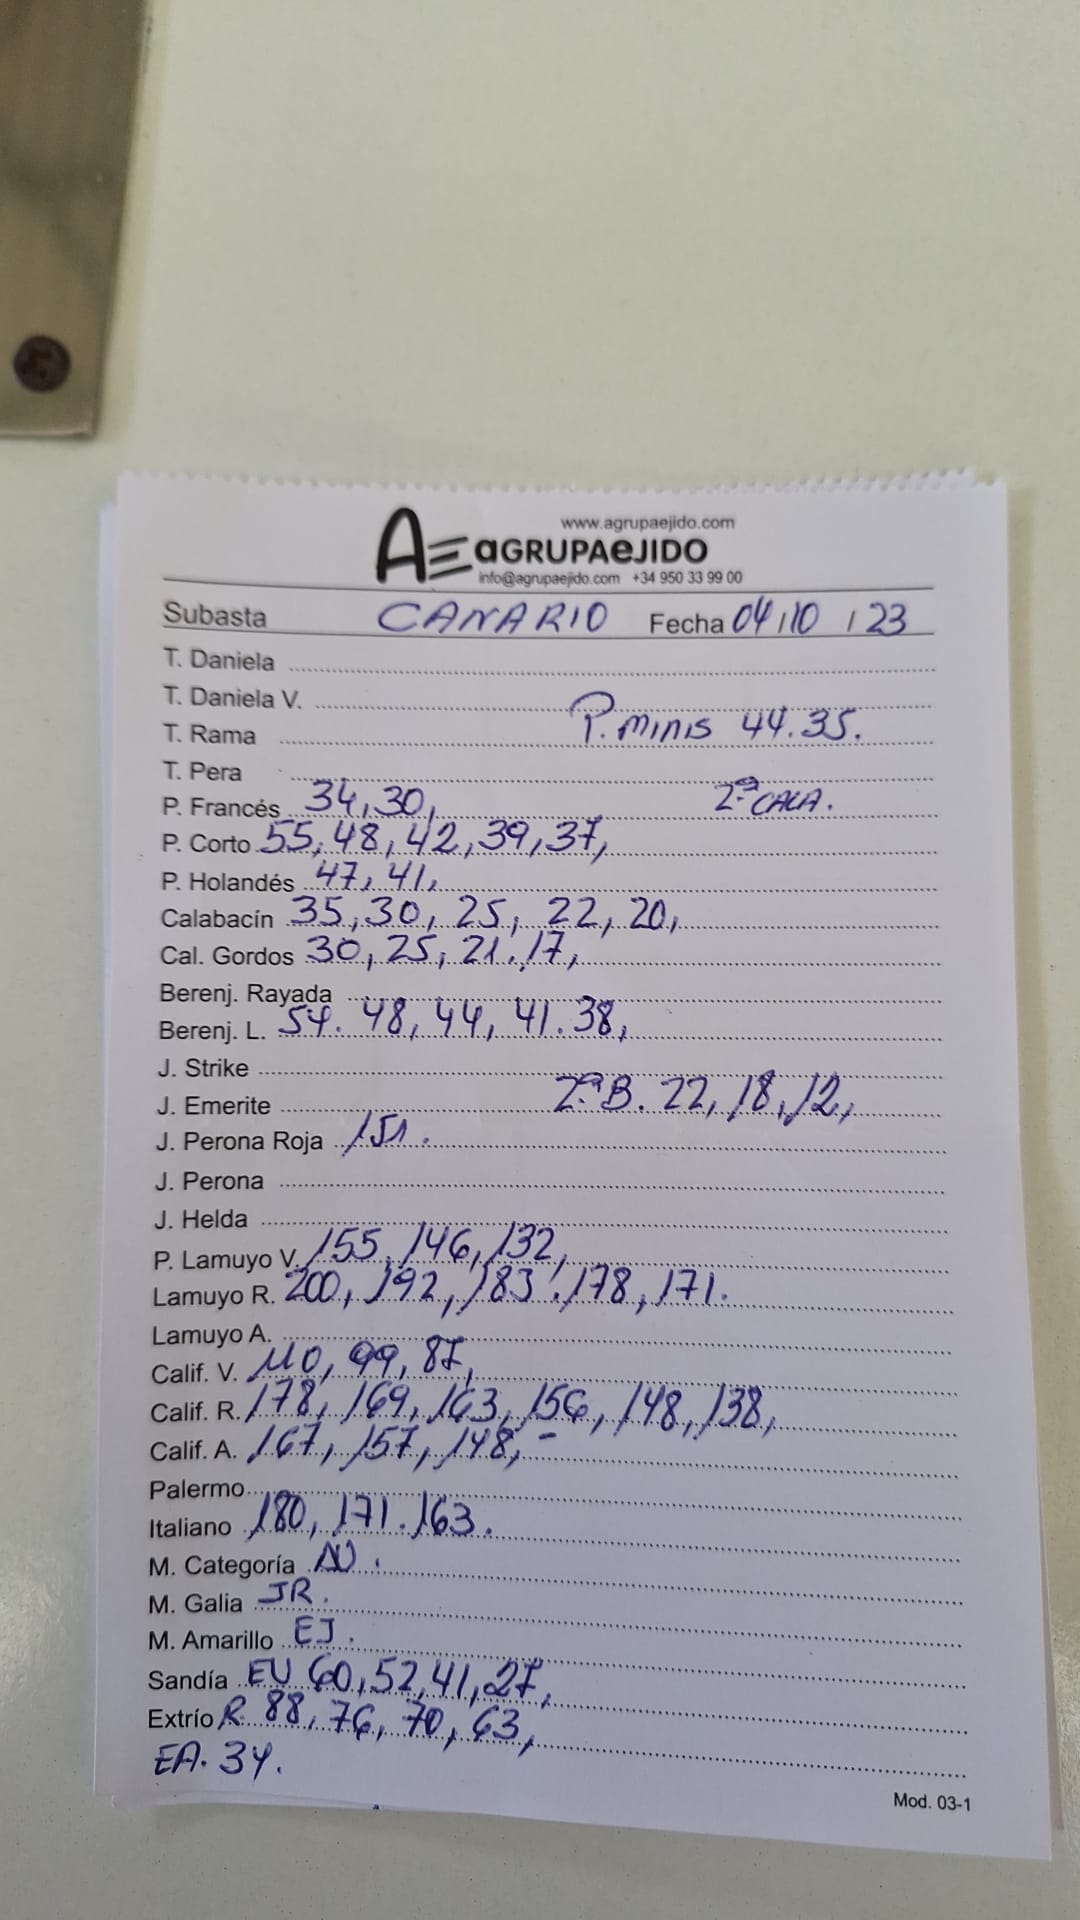 www.agrupaejido.com
AE aGRUPAeJIDO
info@agrupaejido.com +34 950 33 99 00
Subasta CANARIO Fecha 04/10/23
T. Daniela
T. Daniela V.
T. Rama P. MINIS 44.35.
T. Pera
P. Francés 34,30, 2ª CALA.
P. Corto 55,48,42,39,37,
P. Holandés 47,41,
Calabacín 35,30,25,22,20,
Cal. Gordos 30,25,21,17,
Berenj. Rayada
Berenj. L. 54.48,44,41.38,
J. Strike
J. Emerite 2ª B. 22,18,12,
J. Perona Roja 151.
J. Perona
J. Helda
P. Lamuyo V. 155,146,132,
Lamuyo R. 200,192,183,178,171.
Lamuyo A.
Calif. V. 110,99,87,
Calif. R. 178,169,163,156,148,138,
Calif. A. 167,157,148,-
Palermo
Italiano 180,171.163.
M. Categoría
M. Galia JR.
M. Amarillo EJ.
Sandía EU 60,52,41,27,
Extrío R. 88,76,70,63,
EA. 34.
Mod. 03-1